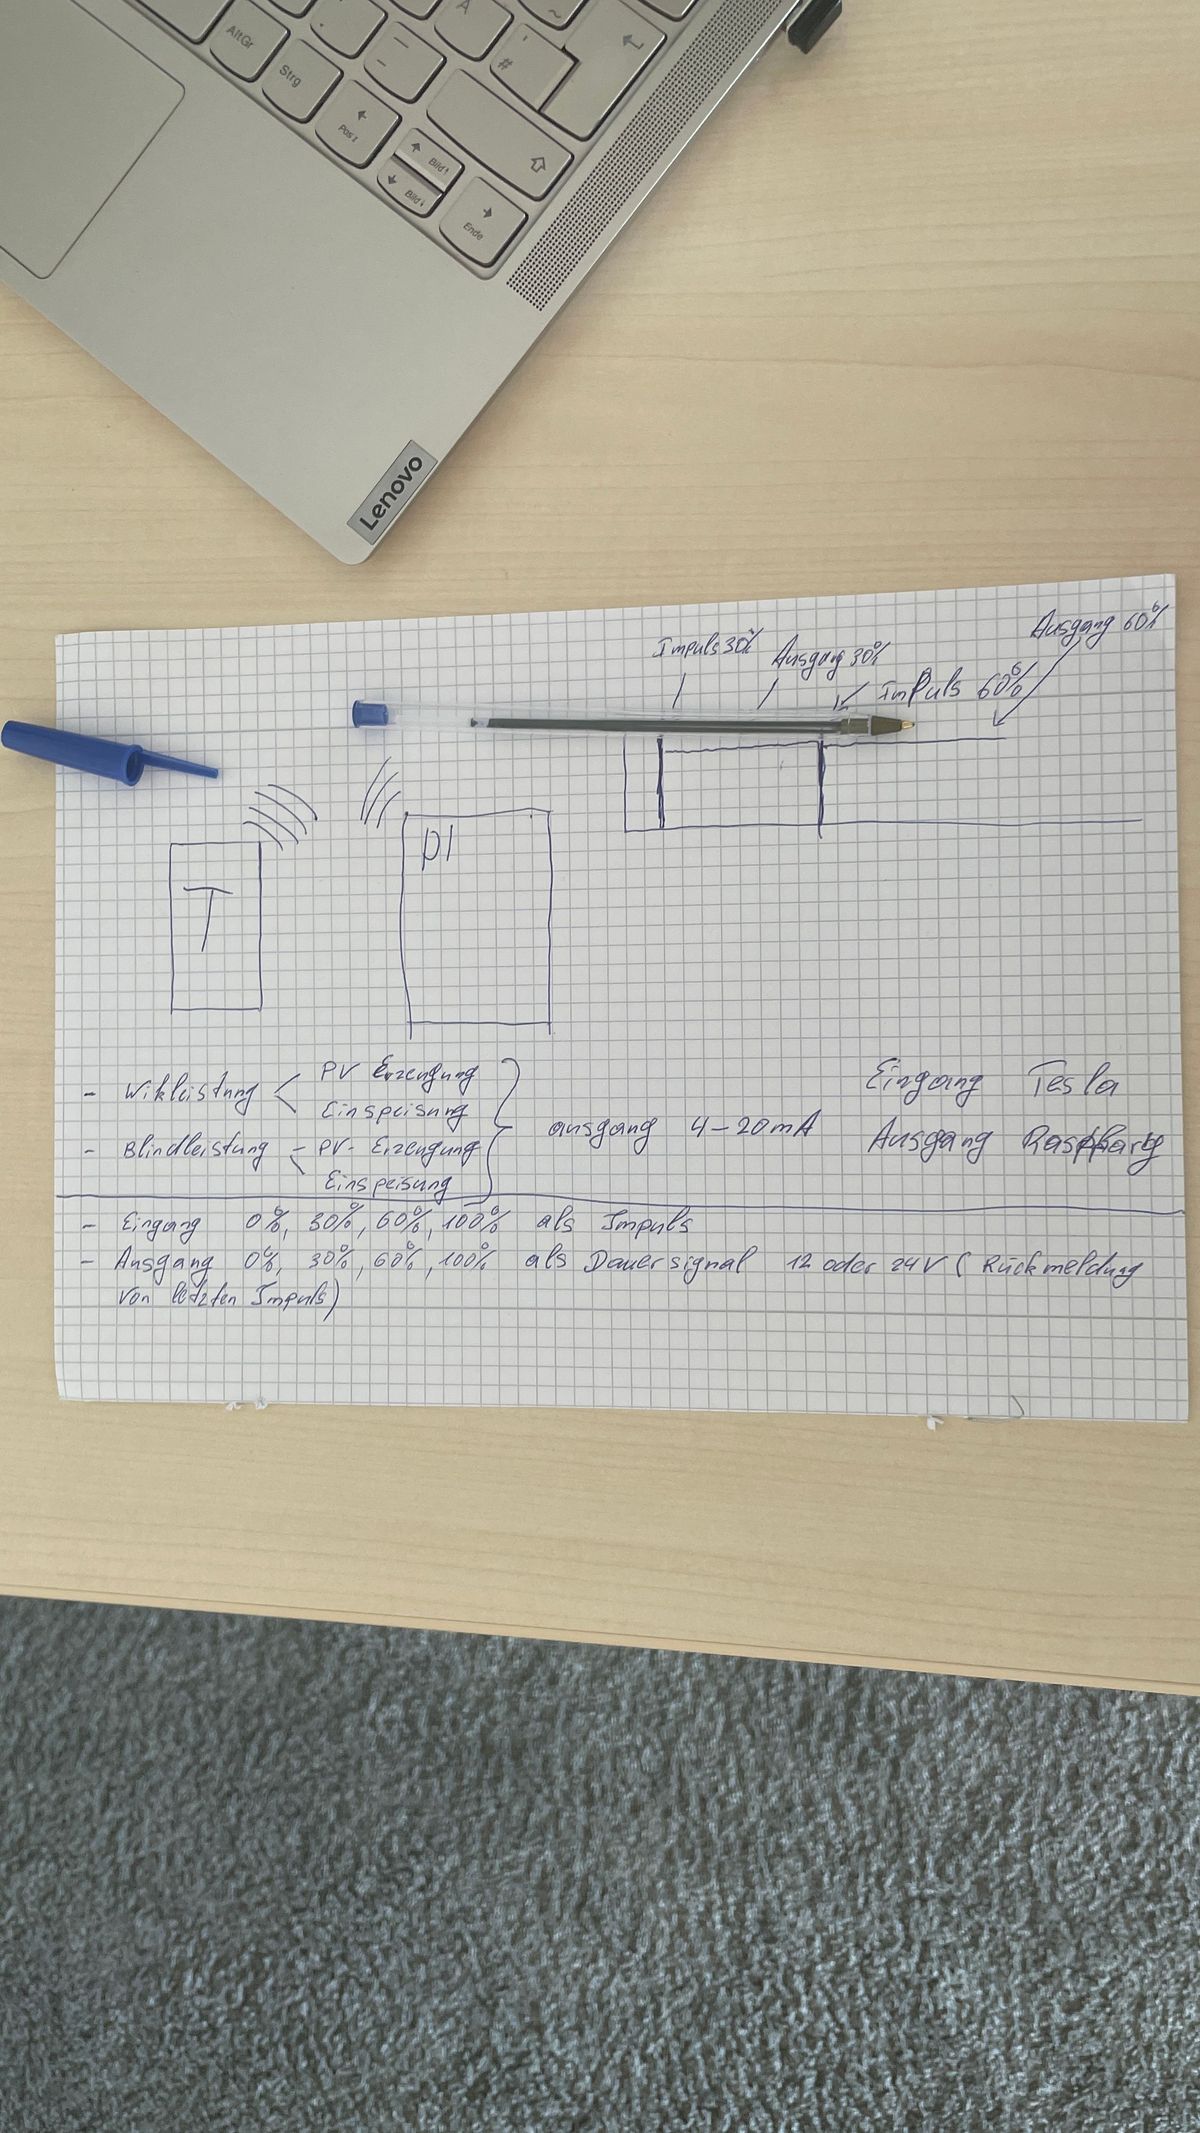 AltGr
Strg
Pos1
Bild↑
Bild↓
Ende
#
'
Lenovo
Ausgang 60%
Impuls 30%
Ausgang 30%
Impuls 60%
PI
T
- Wikleistung < PV Erzeugung
Einspeisung
- Blindleistung - PV- Erzeugung
Einspeisung
ausgang 4-20mA
Eingang Tesla
Ausgang
- Eingang 0%, 30%, 60%, 100% als Impuls
- Ausgang 0%, 30%, 60%, 100% als Dauersignal 12 oder 24V (Rückmeldung
von letzten Impuls)